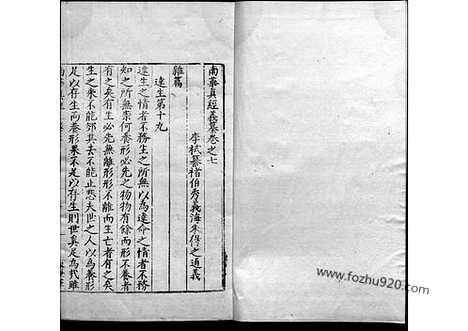 南華真經義纂卷之七
李栻纂褚伯秀義海朱得之通義
雜篇
達生第十九
達生之情者不務生之所無以為達命之情者不務
知之所無柰何養形必先之物物有餘而形不養者
有之矣有生必先無離形形不離而生亡者有之矣
生之來不能郤其去不能止悲夫世之人以為養形
足以存生而養形果不足以存生則世奚足為哉雖
www.fozhu920.com